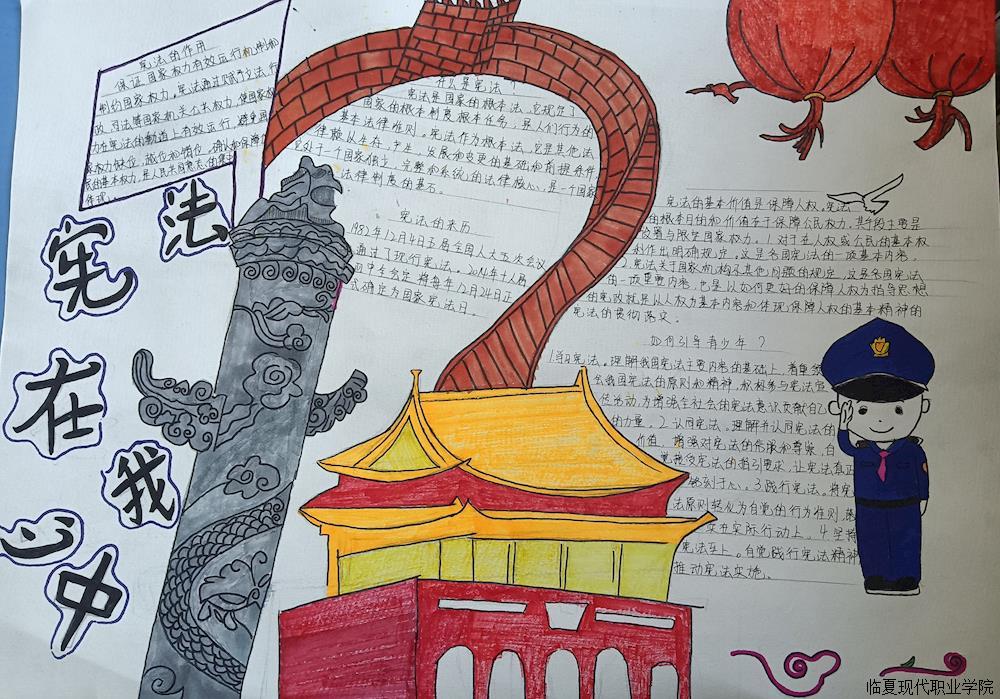 宪法的作用
保证国家权力有效运行和
制约国家权力。宪法通过赋予立法行
政、司法等国家机关公共权力,使国家权
力在宪法的轨道上有效运行,避免国
家权力缺位、越位和错位。确认和保障
民的基本权力,是人民共同意志的集
什么是宪法?
宪法是国家的根本法,它规定了
国家的根本制度根本任务,是人们行为的
基本法律准则。宪法作为根本法,它是其他法
律赖以生存、产生、发展和变更的基础和前提条件
它处于一个国家独立、完整和系统的法律核心,是一个国家
法律制度的基石。
宪法的来历
1982年12月4日五届全国人大五次会议
通过了现行宪法。2014年十八届
四中全会定将每年12月24日正
式确定为国家宪法日。
宪法的基本价值是保障人权。宪法
的根本目的和价值在于保障公民权力,其手段主要是
设置与限定国家权力。1.对于在人权或公民的基本权
利作出明确规定,这是各国宪法的一项基本内容。
2.宪法关于国家机构及其他问题的规定,这是各国宪法
的一项重要内容,也是从如何更好的保障人权为指导思想
的宪政就是从人权力基本内容和体现保障人权的基本精神的
宪法的贯彻落实。
如何引导青少年?
1.学习宪法。理解我国宪法主要内容的基础上,着重领
会我国宪法的原则和精神,积极参与宪法宣
传活动为增强全社会的宪法意识贡献自己
的力量。2.认同宪法。理解并认同宪法的
价值,增强对宪法的信服和尊崇,自
觉接受宪法的指引要求,让宪法真正
铭刻于心。3.践行宪法。将宪
法原则转化为自觉的行为准则,落
实在实际行动上。4.坚持
宪法至上。自觉践行宪法精神
推动宪法实施。
宪法在我心中
临夏现代职业学院